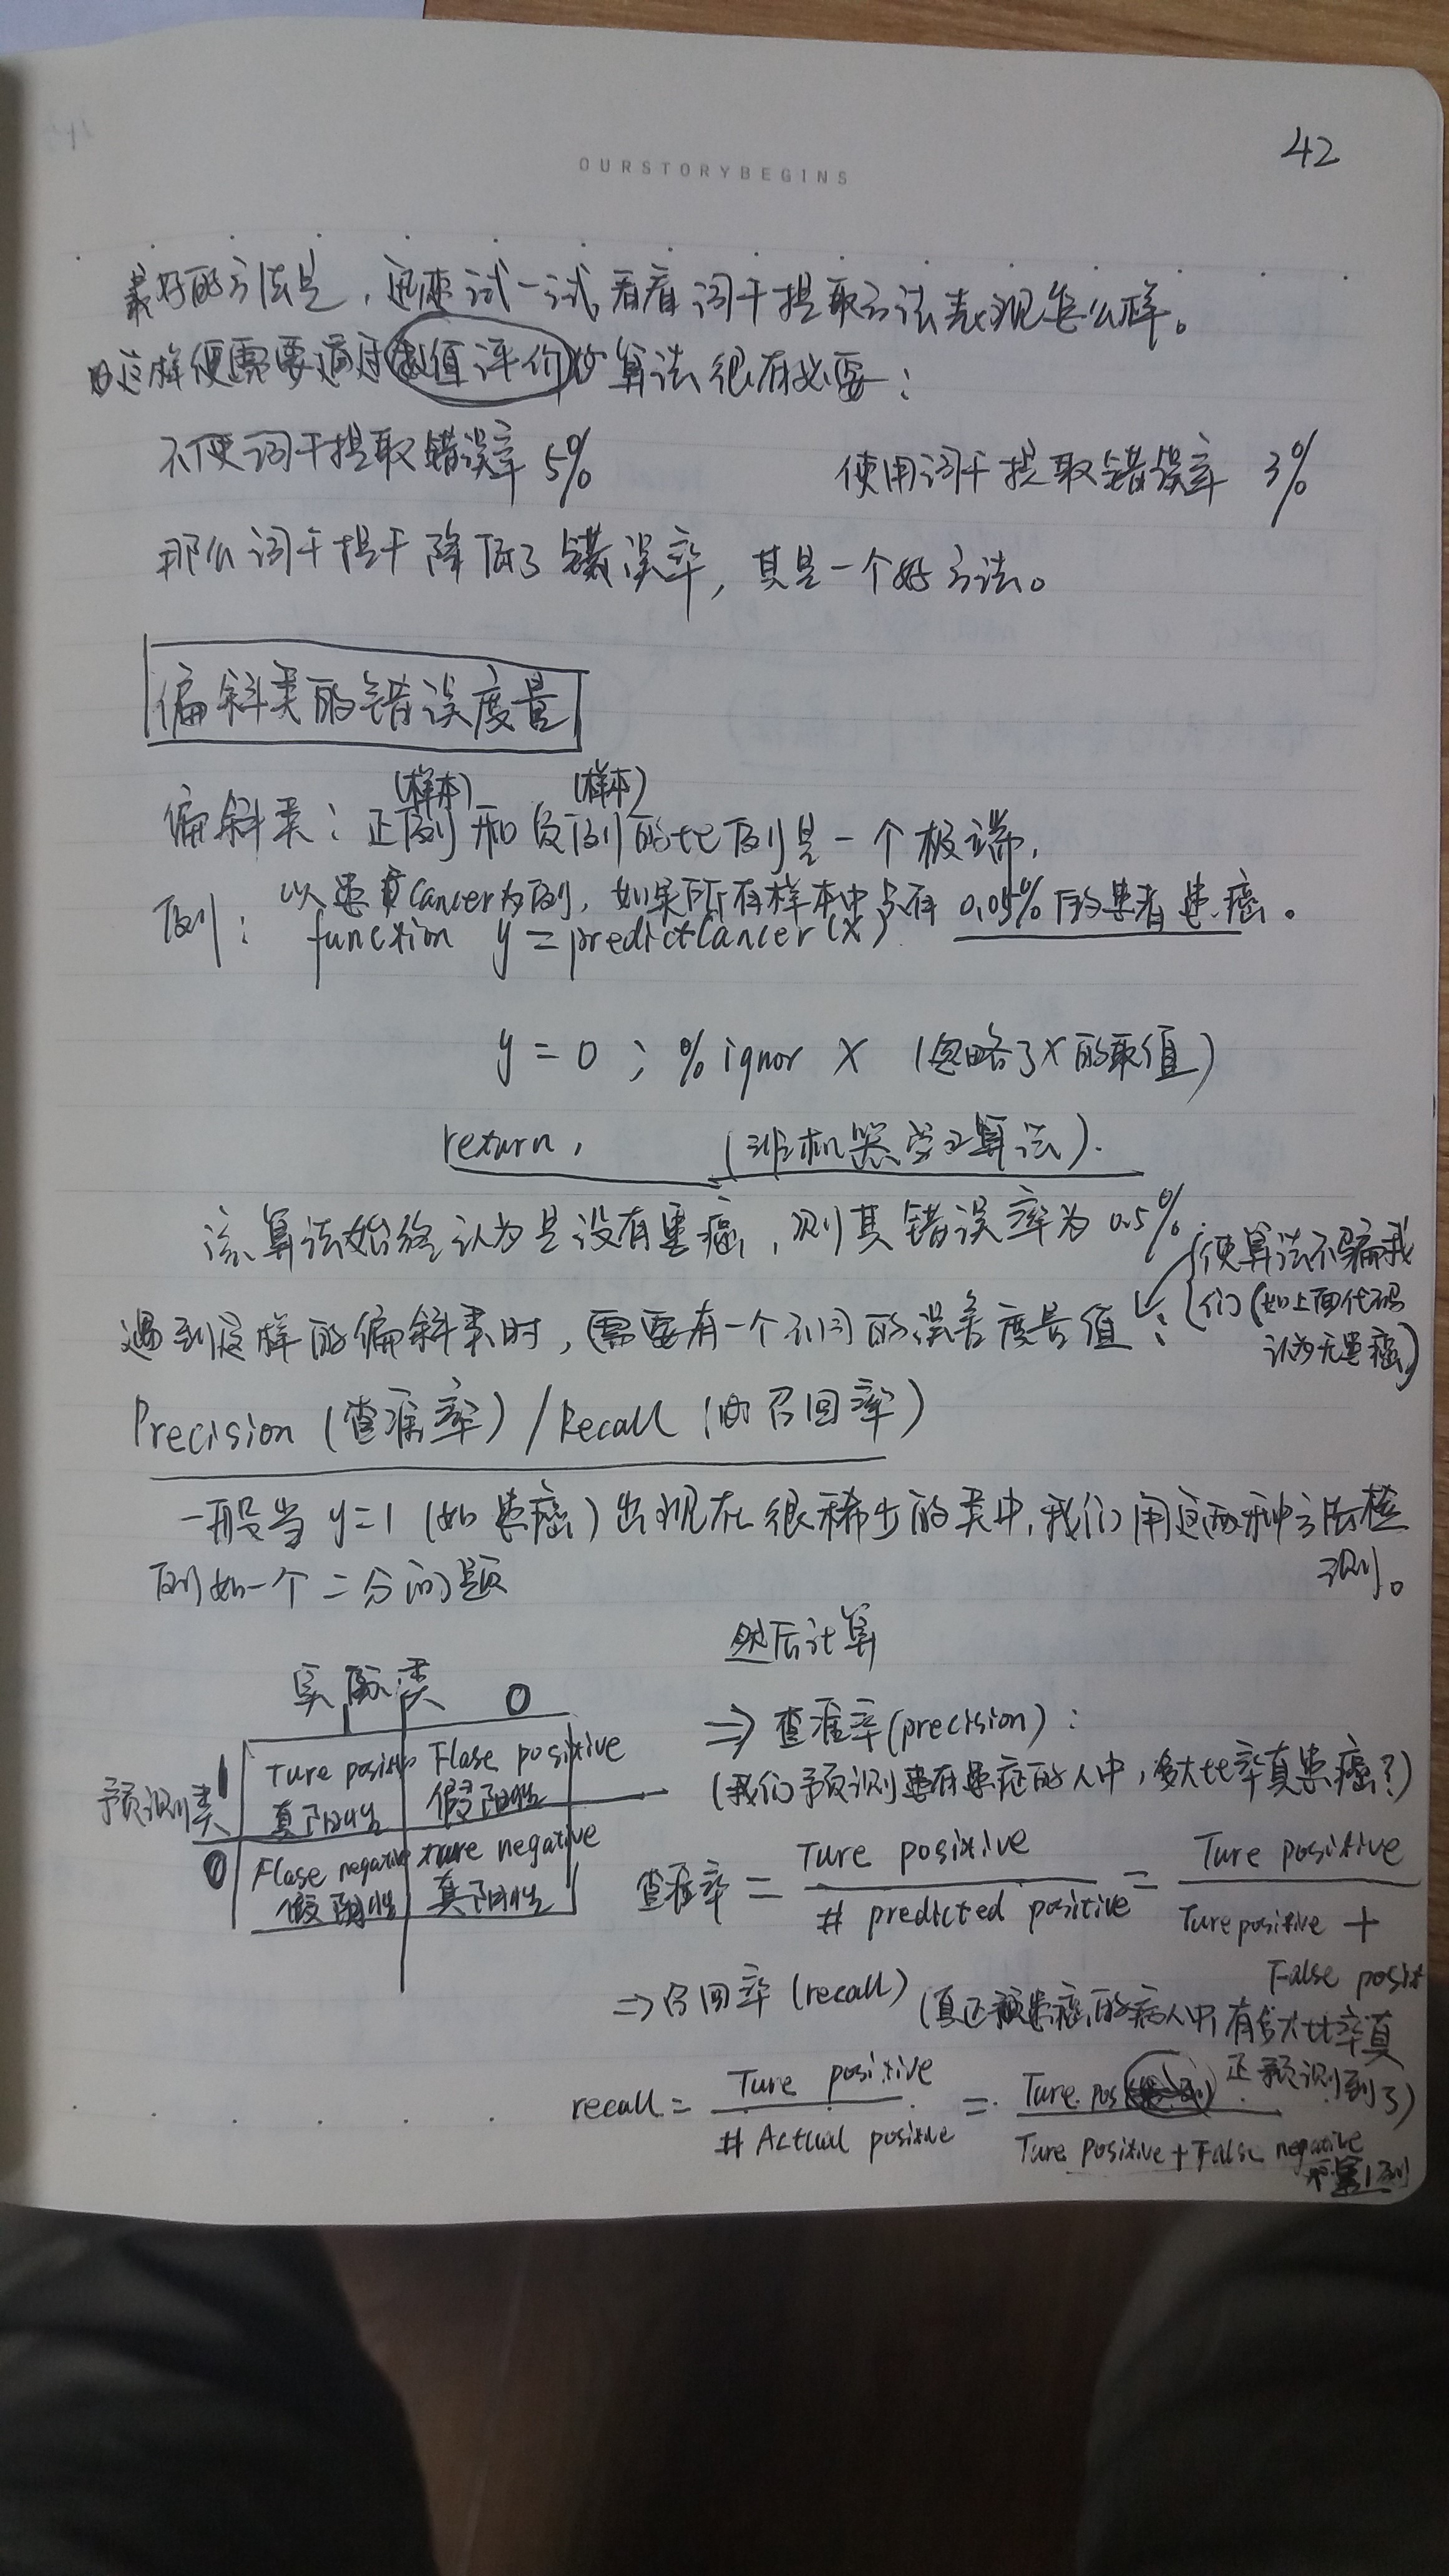 42
OURSTORYBEGINS
最好的方法是，迅速试一试，看看词干提取方法表现怎么样。
这样便需要通过数值评价的算法很有必要：
不使词干提取错误率 5%
使用词干提取错误率 3%
那么词干提干降低了错误率，其是一个好方法。
偏斜类的错误度量
(样本) (样本)
偏斜类：正例和负例的比例是一个极端，
例：以患者Cancer为例，如果所有样本中只有 0.05% 的患者患癌。
function y = predictCancer(x)
y = 0 ; % ignor x (忽略了x的取值)
return, (非机器学习算法).
该算法始终认为是没有患癌，则其错误率为 0.5%
使算法不骗我
们(如上面代码
认为无患癌)
遇到这样的偏斜类时，需要有一个不同的误差度量值：
Precision (查准率) / Recall (召回率)
一般当 y=1 (如患癌) 出现在很稀少的类中，我们用这两种方法检
测。
例如一个二分问题
然后计算
实际类
1 0
预测类 1 Ture positive Flase positive
真阳性 假阳性
0 Flase negative ture negative
假阴性 真阴性
⇒ 查准率(precision)：
(我们预测患有患症的人中，多大比率真患癌？)
查准率 = Ture positive / # predicted positive = Ture positive / Ture positive +
False posit
⇒ 召回率 (recall) (真正患癌的病人中，有多大比率真
正预测到了)
recall = Ture positive / # Actual positive = Ture pos / Ture positive + False negative